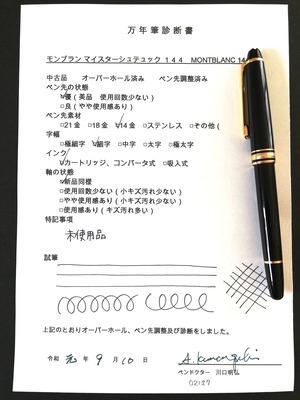 万年筆診断書
モンブラン マイスターシュテュック １４４ MONTBLANC 14
中古品 オーバーホール済み ペン先調整済み
ペン先の状態
☑優(美品 使用回数少ない)
□良(やや使用感あり)
ペン先素材
□21金 □18金 ☑14金 □ステンレス □その他(
字幅
□極細字 ☑細字 □中字 □太字 □極太字
インク
☑カートリッジ、コンバータ式 □吸入式
軸の状態
☑新品同様
□使用回数少ない(小キズ汚れ少ない)
□やや使用感あり(小キズ汚れ少ない)
□使用感あり(キズ汚れ多い)
特記事項
未使用品
試筆
上記のとおりオーバーホール、ペン先調整及び診断をしました。
令和 元 年 9 月 10 日
ペンドクター 川口明弘
02127